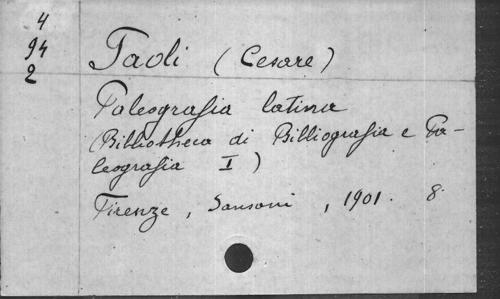 4
94
2
Paoli (Cesare)
Paleografia latina
(Bibliotheca di Bibliografia e Pa-
leografia I)
Firenze, Sansoni, 1901. 8